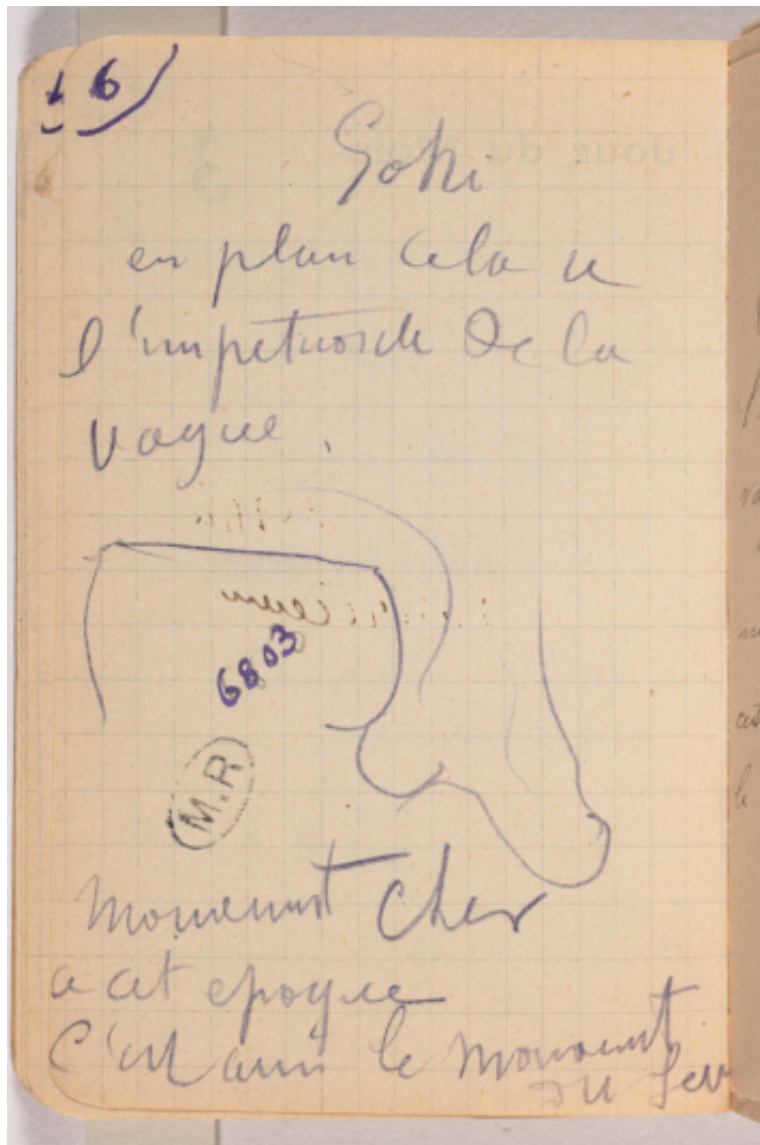 16
en plan cela a
l'impetuosite de la
vague.
6803
M.R
mouvement cher
a cet epoque
C'est ainsi le mouvement
du